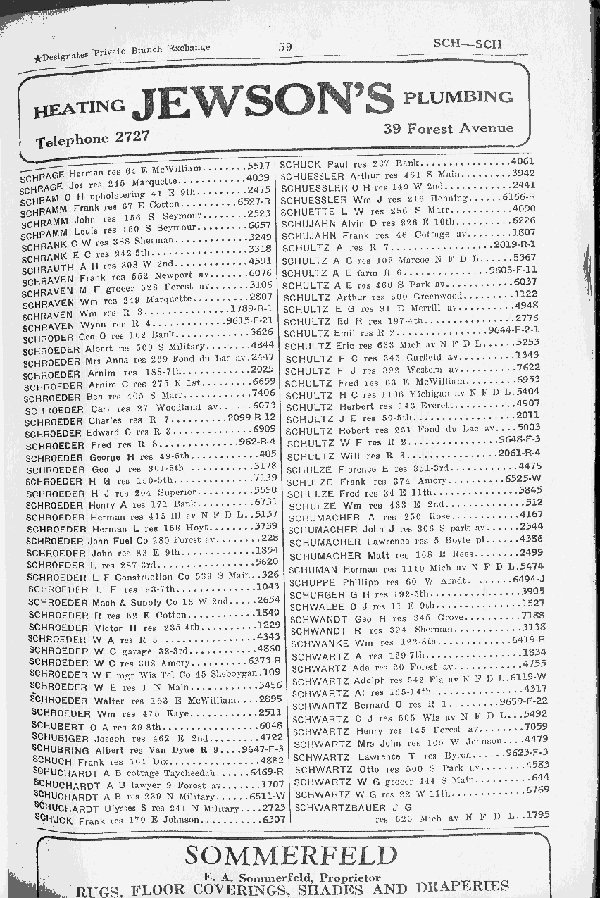 ★Designates Private Branch Exchange
59
SCH—SCH
HEATING JEWSON'S PLUMBING
Telephone 2727
39 Forest Avenue
SCHRAGE Herman res 64 E McWilliam........5517
SCHRAGE Jos res 245 Marquette............4039
SCHRAM O H upholstering 41 E 9th.........2475
SCHRAMM Frank res 67 E Cotton............6527-R
SCHRAMM John res 154 S Seymour...........2523
SCHRAMM Louis res 160 S Seymour..........6657
SCHRANK C W res Sherman..................3249
SCHRANK E C res
SCHRAUTH A H res 308 W 2nd...............4591
SCHRAVEN Frank res 552 Newport av........6076
SCHRAVEN M F grocer 526 Forest av........3105
SCHRAVEN Wm res 249 Marquette............2807
SCHRAVEN Wm res R 3......................1789-R-1
SCHRAVEN Wynn res R 4....................9615-F-21
SCHRODER Geo O res 102 Bank..............3626
SCHROEDER Albert res 500 S Military......4844
SCHROEDER Mrs Anna res 229 Fond du Lac av.2447
SCHROEDER Arnim res 185-7th..............2025
SCHROEDER Arnim C res 275 N 1st..........6659
SCHROEDER Ben res 405 S Main.............7406
SCHROEDER Carl res 27 Woodland av........5073
SCHROEDER Charles res R 7................2099-R-12
SCHROEDER Edward C res R 3...............6909
SCHROEDER Fred res R 6...................962-R-4
SCHROEDER George H res 49-6th............405
SCHROEDER Geo J res 301-5th..............3178
SCHROEDER H G res 100-5th................7139
SCHROEDER H J res 204 Superior...........5550
SCHROEDER Henry A res 171 Bank...........6731
SCHROEDER Herman res 415 Ill av N F D L..5137
SCHROEDER Herman L res 158 Hoyt..........3739
SCHROEDER John Fuel Co 280 Forest av.....228
SCHROEDER John res 83 E 9th..............1894
SCHROEDER L res 287-3rd..................5620
SCHROEDER L F Construction Co 533 S Main...326
SCHROEDER L F res 83-7th.................1043
SCHROEDER Mash & Supply Co 15 W 2nd......2654
SCHROEDER R res 62 E Cotton..............1549
SCHROEDER Victor H res 235-4th...........1229
SCHROEDER W A res R 5....................4343
SCHROEDER W C garage 38-3rd..............4860
SCHROEDER W C res 302 Amory..............6373-R
SCHROEDER W F mgr Wis Tel Co 45 Sheboygan.109
SCHROEDER W F res 1 N Main...............5456
SCHROEDER Walter res 153 E McWilliam.....2895
SCHROEDER Wm res 475 Kaye................2511
SCHUBERT O A res 80-8th..................6048
SCHUBIGER Joseph res 462 E 2nd...........4722
SCHUBRING Albert res Van Dyne R 3........9647-F-3
SCHUCH Frank res 104 Dix.................4882
SCHUCHARDT A B cottage Taycheedah........5469-R
SCHUCHARDT A B lawyer 9 Forest av........1707
SCHUCHARDT A B res 239 N Military........6511-W
SCHUCHARDT Ulysses S res 241 N Military..2723
SCHUCK Frank res 170 E Johnson...........6307
SCHUCK Paul res 237 Bank.................4061
SCHUESSLER Arthur res 461 S Main.........3942
SCHUESSLER O H res 149 W 2nd.............2441
SCHUESSLER Wm J res 218 Henning..........6156-R
SCHUETTE L W res 256 S Main..............4690
SCHUJAHN Alvin D res 228 E 10th..........6226
SCHUJAHN Frank res 46 Cottage av.........1807
SCHULTZ A res R 7........................2019-R-1
SCHULTZ A C res 108 Marcoe N F D L.......5367
SCHULTZ A E farm R 6.....................9605-F-11
SCHULTZ A E res 460 S Park av............6037
SCHULTZ Arthur res 500 Greenwood.........1122
SCHULTZ E G res 31 E Merrill av..........4948
SCHULTZ Ed R res 197-4th.................2775
SCHULTZ Emil res R 2.....................9644-F-2-1
SCHULTZ Eric res 653 Mich av N F D L.....5253
SCHULTZ F C res 345 Garfield av..........1349
SCHULTZ F J res 322 Western av...........7622
SCHULTZ Fred res 63 E McWilliam..........6953
SCHULTZ H C res 1106 Michigan av N F D L.5404
SCHULTZ Herbert res 143 Everett..........4507
SCHULTZ J E res 50-5th...................2011
SCHULTZ Robert res 251 Fond du Lac av....5003
SCHULTZ W F res R 2......................9648-F-3
SCHULTZ Will res R 3.....................2061-R-4
SCHULZE Florence E res 331-3rd...........4475
SCHULZE Frank res 374 Amory..............6525-W
SCHULZE Fred res 34 E 11th...............5845
SCHULZE Wm res 483 E 2nd.................512
SCHUMACHER A res 250 Rose................4167
SCHUMACHER John J res 306 S park av......2544
SCHUMACHER Lawrence res 5 Boyle pl.......4386
SCHUMACHER Matt res 168 E Rees...........2499
SCHUMAN Herman res 1160 Mich av N F D L..5474
SCHUPPE Phillipp res 60 W Arndt..........6494-J
SCHURGER G H res 192-5th.................3905
SCHWALBE O J res 11 E 9th................1527
SCHWANDT Geo H res 345 Grove.............7188
SCHWANDT R res 324 Sherman...............3116
SCHWANKE Wm res 192-5th..................6419-R
SCHWARTZ A res 189-7th...................1834
SCHWARTZ Ada res 30 Forest av............4755
SCHWARTZ Adolph res 542 Fla av N F D L...6119-W
SCHWARTZ Al res 105-14th.................4317
SCHWARTZ Bernard O res R 1...............9659-F-22
SCHWARTZ C J res 505 Wis av N F D L......5492
SCHWARTZ Henry res 145 Forest av.........7059
SCHWARTZ Mrs John res 105 W Johnson......4479
SCHWARTZ Lawrence T res Byron............9623-F-3
SCHWARTZ Otto res 500 S Park av..........4583
SCHWARTZ W G grocer 344 S Main...........644
SCHWARTZ W G res 22 W 11th...............6769
SCHWARTZBAUER J G
res 525 Mich av N F D L..1795
SOMMERFELD
F. A. Sommerfeld, Proprietor
RUGS, FLOOR COVERINGS, SHADES AND DRAPERIES